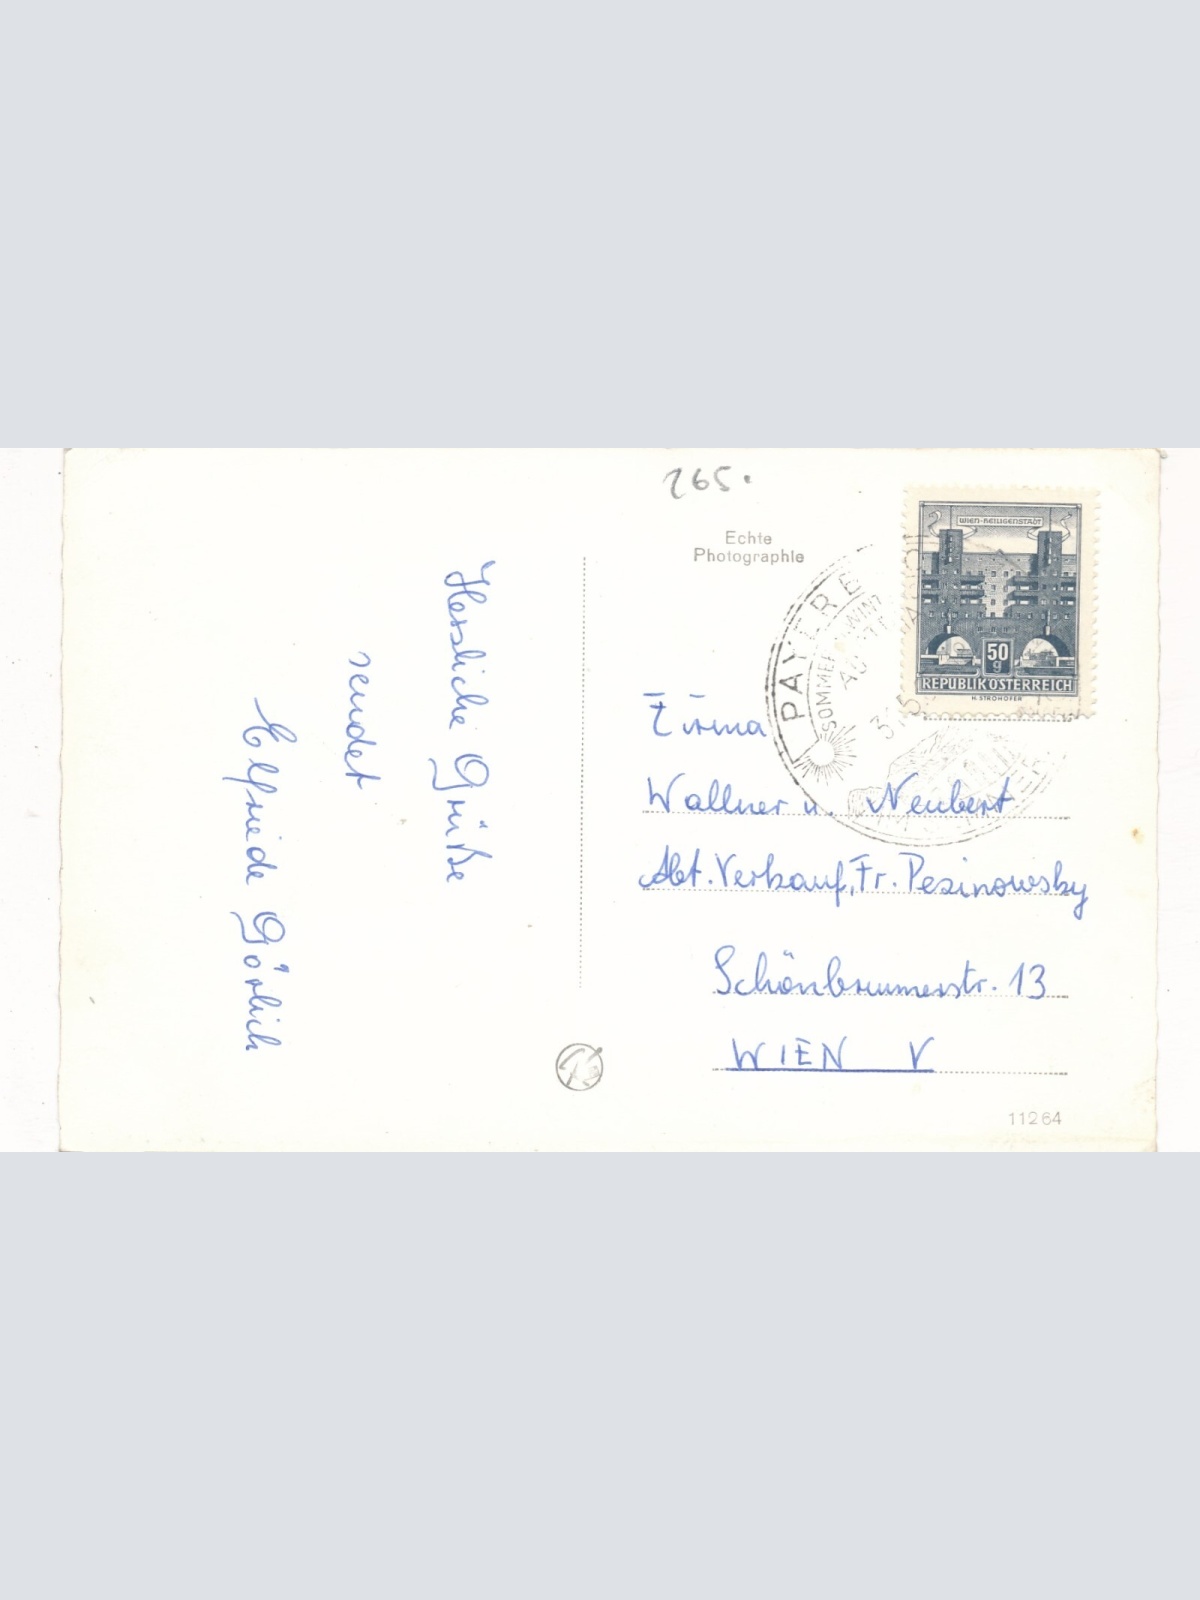 265.
Echte
Photographie
WIEN-HEILIGENSTADT
50
g
REPUBLIK ÖSTERREICH
H. STROHOFER
PAYERB
SOMMER
315
Herzliche Grüße
sendet
Elfriede Görlich
Firma
Wallner u. Neubert
Abt. Verkauf, Fr. Pezinowsky
Schönbrunnerstr. 13
WIEN V
11264